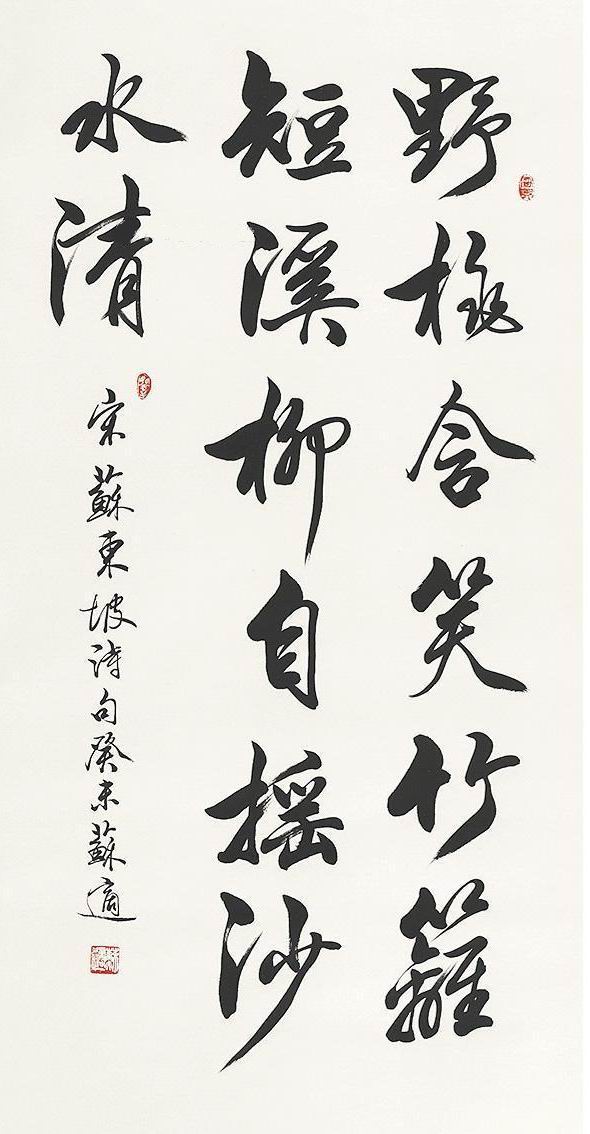 野桃含笑竹籬
短溪柳自搖沙
水清
宋蘇東坡詩句癸未蘇適